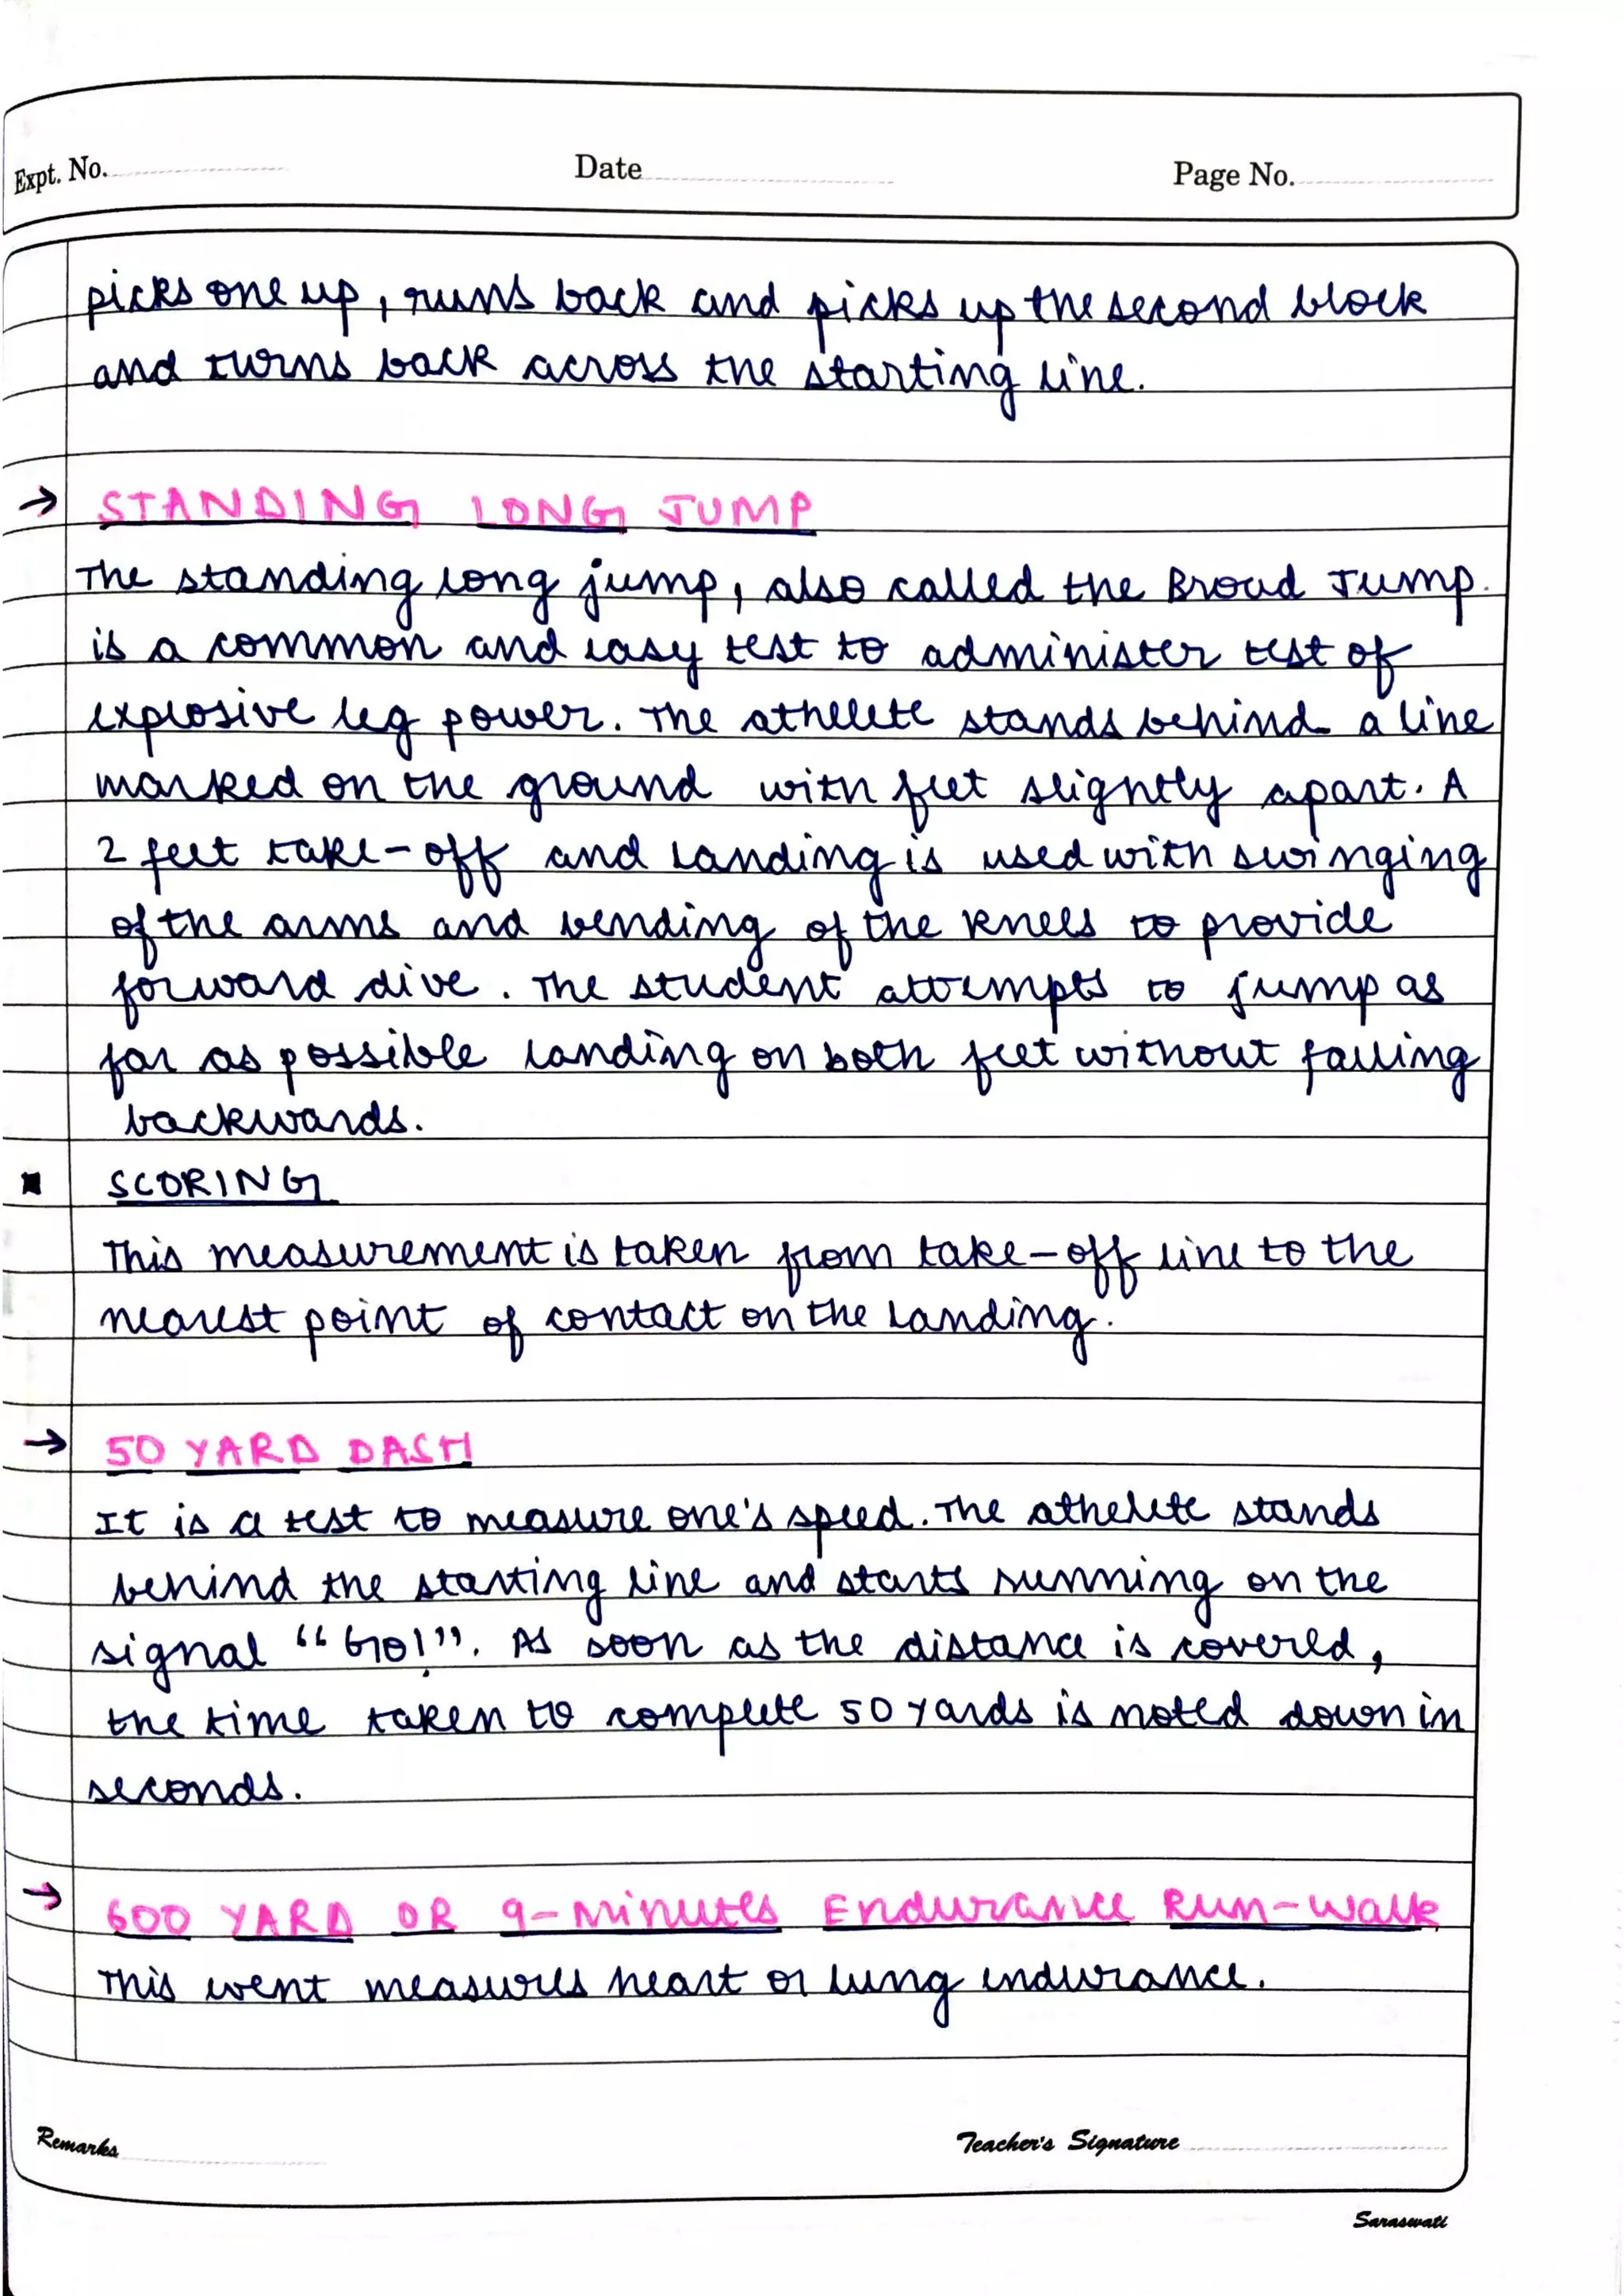 Expt. No. Date Page No.
picks one up, runs back and picks up the second block
and turns back across the starting line.
→ STANDING LONG JUMP
The standing long jump, also called the Broad Jump.
is a common and easy test to administer test of
explosive leg power. The athelete stands behind a line
marked on the ground with feet slightly apart. A
2 feet take-off and landing is used with swinging
of the arms and bending of the knees to provide
forward dive. The student attempts to jump as
far as possible landing on both feet without falling
backwards.
SCORING
This measurement is taken from take-off line to the
nearest point of contact on the landing.
→ 50 YARD DASH
It is a test to measure one's speed. The athelete stands
behind the starting line and starts running on the
signal "Go!". As soon as the distance is covered,
the time taken to complete 50 yards is noted down in
seconds.
→ 600 YARD OR 9-Minutes Endurance Run-Walk
This went measures heart or lung endurance.
Remarks Teacher's Signature
Saraswati